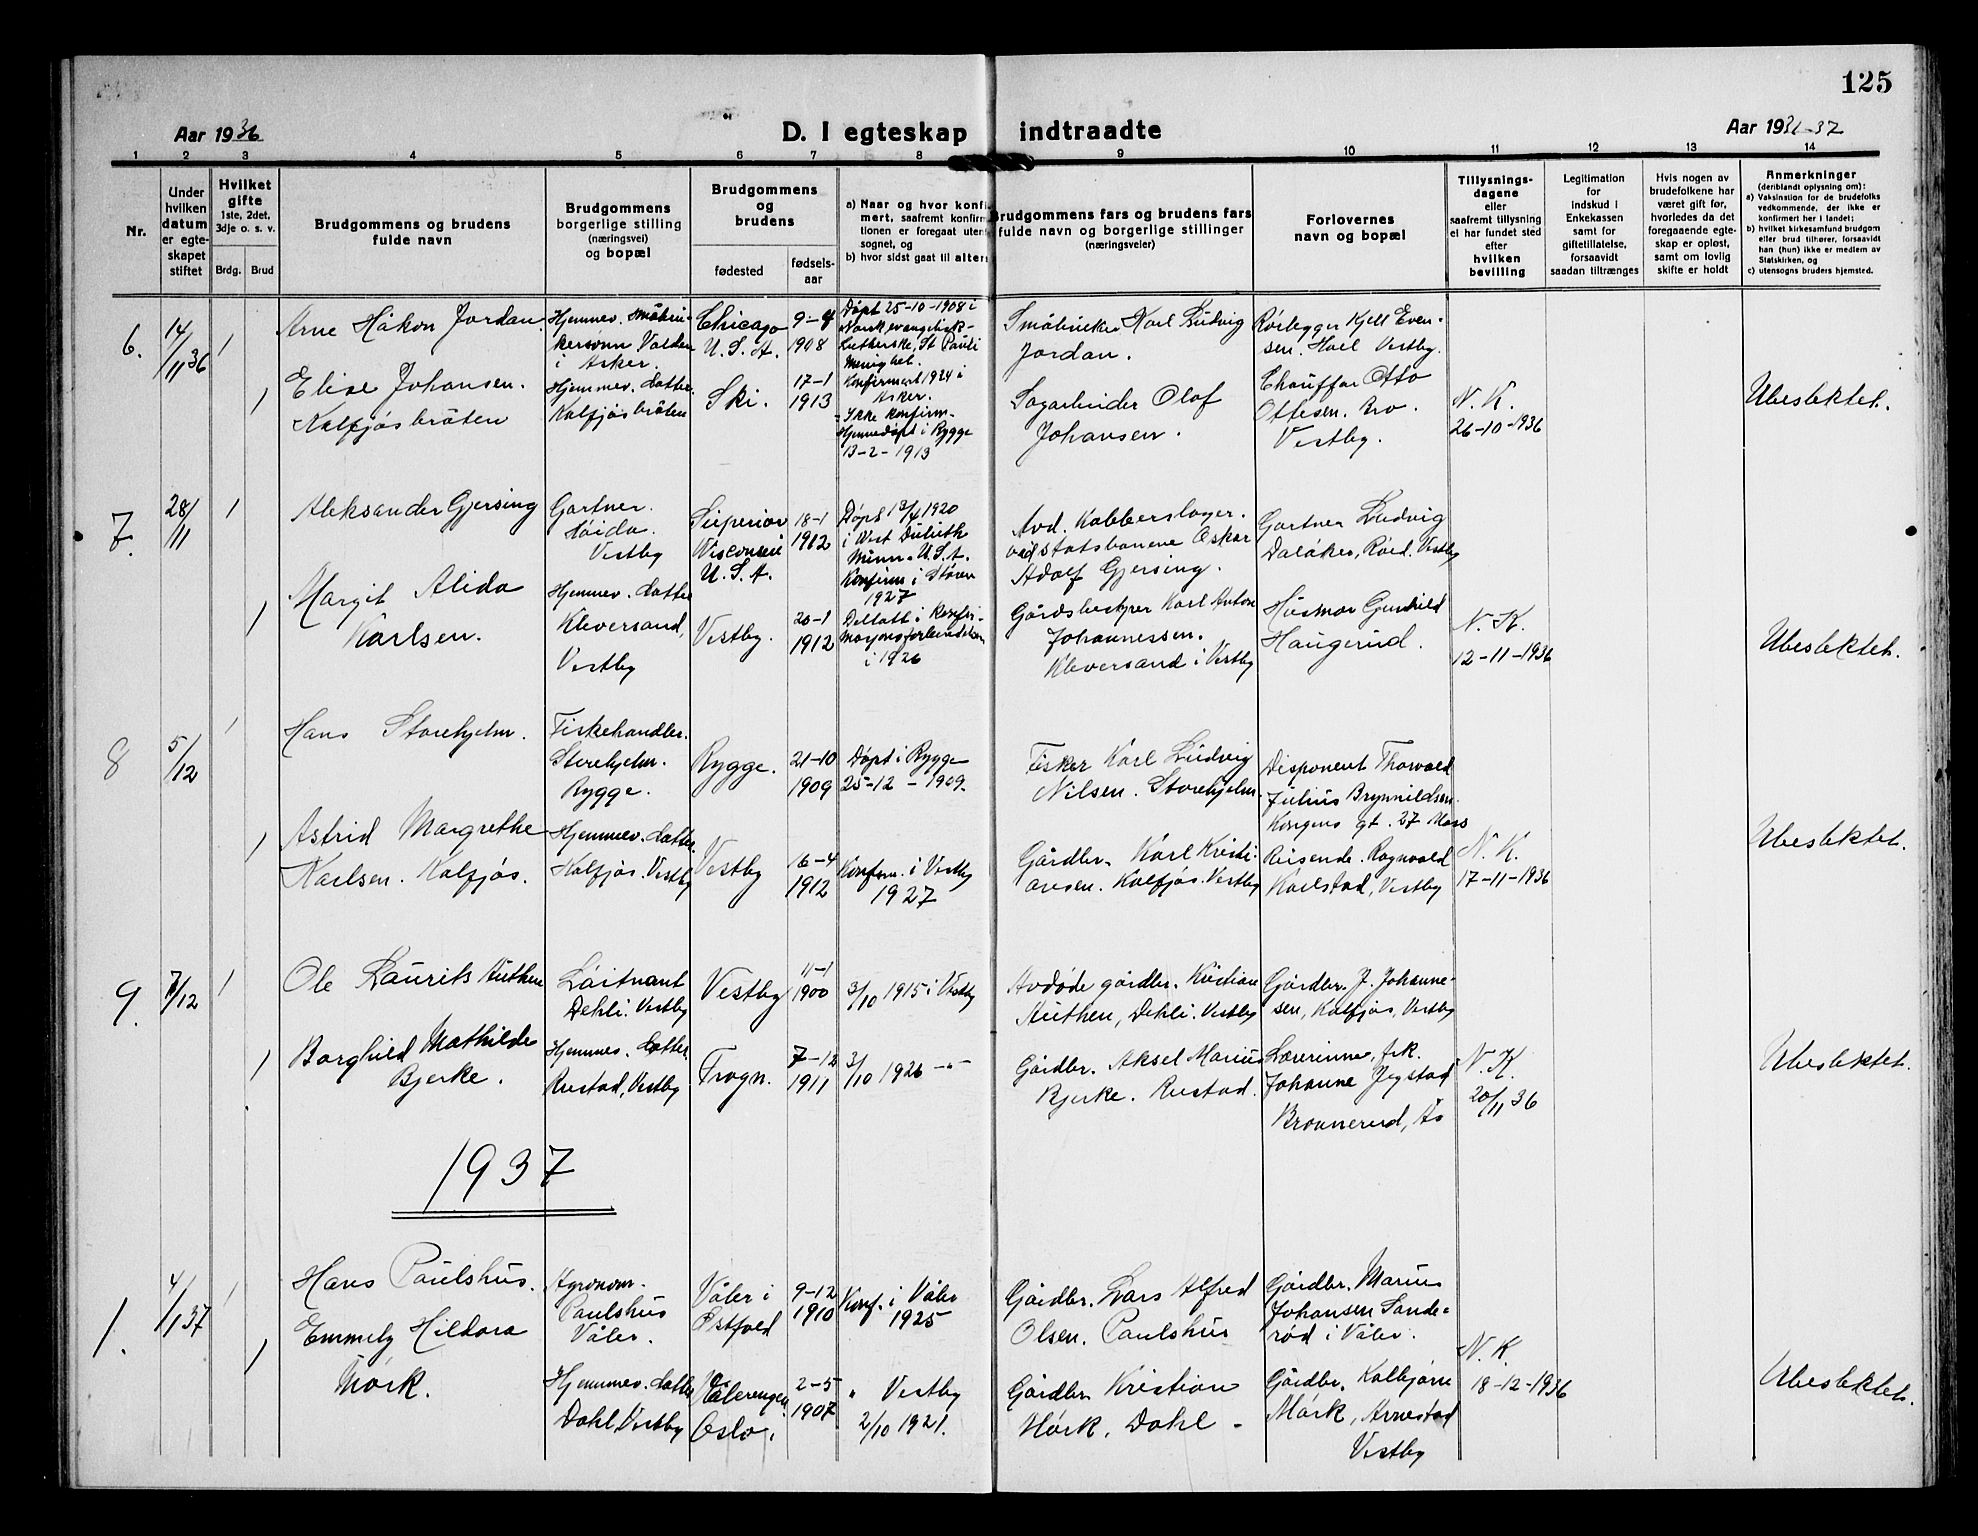 125
Aar 1936
D. I egteskap indtraadte
Aar 1936-37
1 2 3 4 5 6 7 8 9 10 11 12 13 14
Nr.
Under
hvilken
datum
er egte-
skapet
stiftet
Hvilket
gifte
1ste, 2det,
3dje o. s. v.
Brdg. Brud
Brudgommens og brudens
fulde navn
Brudgommens
borgerlige stilling
(næringsvei)
og bopæl
Brudgommens
og
brudens
fødested
fødsels-
aar
a) Naar og hvor konfir
mert, saafremt konfirm
tionen er foregaat uten
sognet, og
b) hvor sidst gaat til alters
Brudgommens fars og brudens fars
fulde navn og borgerlige stillinger
(næringsveier)
Forlovernes
navn og bopæl
Tillysnings-
dagene
eller
saafremt tillysning
ei har fundet sted
efter
hvilken
bevilling
Legitimation
for
indskud i
Enkekassen
samt for
giftetillatelse,
forsaavidt
saadan tiltrænges
Hvis nogen av
brudefolkene har
været gift før,
hvorledes da det
foregaaende egte-
skap er opløst,
samt om lovlig
skifte er holdt
Anmerkninger
(deriblandt oplysning om):
a) Vaksination for de brudefolks
vedkommende, der ikke er
konfirmert her i landet;
b) hvilket kirkesamfund brudgom
eller brud tilhører, forsaavidt
han (hun) ikke er medlem av
Statskirken, og
c) utensogns bruders hjemsted.
6.
14/11 36
1
Arne Håkon Jordan
Hjemmev. småbru-
kersønn Valden
i Asker.
Chicago
U.S.A.
9-9
1908
Døpt 25-10-1908 i
Norsk evangelisk-
Lutherske, St Pauli
Menighet.
Konfirmert 1924 i
Asker.
Småbruker Karl Ludvig
Jordan.
Rørlegger Kjell Even-
sen. Hoel Vestby.
1
Elise Johansen.
Kolfjøsbråten
Hjemmev. datter
Kolfjøsbråten
Ski.
17-1
1913
Ikke konfirm-
Hjemmedøpt i Rygge
13-2-1913
Sagarbeider Olof
Johansen.
Chauffør Otto
Ottesen. Bro.
Vestby.
N. K.
26-10-1936
Ubeslektet.
7.
28/11
1
Aleksander Gjersing
Gartner.
Høida.
Vestby
Superior
Wisconsin
U.S.A.
18-1
1912
Døpt 13/4 1920
i West Duluth
Minn. U.S.A.
Konfirm i Støren
1927
Avd. Kobberslager.
ved statsbanene Oskar
Adolf Gjersing.
Gartner Ludvig
Daløker, Røed. Vestby
1
Margit Alida
Karlsen.
Hjemmev. datter
Kleversand,
Vestby
Vestby.
20-1
1912
Deltatt i konfir-
masjonsforberedelsen
i 1926
Gårdsbestyrer Karl Anton
Johannessen.
Kleversand i Vestby
Husmor Gunhild
Haugerud.
N. K.
12-11-1936
Ubeslektet.
8
5/12
1
Hans Storehjelm.
Fiskehandler.
Storehjelm.
Rygge.
Rygge.
21-10
1909
Døpt i Rygge
25-12-1909.
Fisker Karl Ludvig
Nilsen. Storehjelm.
Disponent Thorvald
Julius Brynnildsen.
Kongens gt. 27 Moss
1
Astrid Margrethe
Karlsen. Kolfjøs.
Hjemmev. datter.
Kolfjøs. Vestby
Vestby
16-4
1912
Konfirm. i Vestby
1927
Gårdbr. Karl Kristi-
ansen. Kolfjøs. Vestby
Reisende. Ragnvald
Karlstad, Vestby
N. K.
17-11-1936
Ubeslektet.
9.
7/12
1
Ole Laurits Huthen
Løitnant
Dehli. Vestby
Vestby
11-1
1900
3/10 1915 i Vestby
Avdøde gårdbr. Kristian
Huthen, Dehli. Vestby
Gårdbr. J. Johanne-
sen, Kolfjøs, Vestby
1
Borghild Mathilde
Bjerke.
Hjemmev. datter.
Rustad, Vestby
Frogn.
7-12
1911
3/10 1926 -"-
Gårdbr. Aksel Marius
Bjerke. Rustad.
Lærerinne, frk.
Johanne Jegstad
Brønnerud, Ås
N. K.
20/11 36
Ubeslektet.
1937
1.
4/1 37
1
Hans Paulshus.
Agronom.
Paulshus
Våler.
Våler i
Østfold
9-12
1910
Konf. i Våler
1925
Gårdbr. Lars Alfred
Olsen. Paulshus
Gårdbr. Marius
Johansen Sande-
rød i Våler.
1
Emmely Hildora
Mørk.
Hjemmev. datter
Dahl, Vestby
Vålerengen
Oslo.
2-5
1907
" Vestby
2/10 1921.
Gårdbr. Kristian
Mørk. Dahl -
Gårdbr. Kolbjørn
Mørk, Arnestad
Vestby
N. K.
18-12-1936
Ubeslektet.